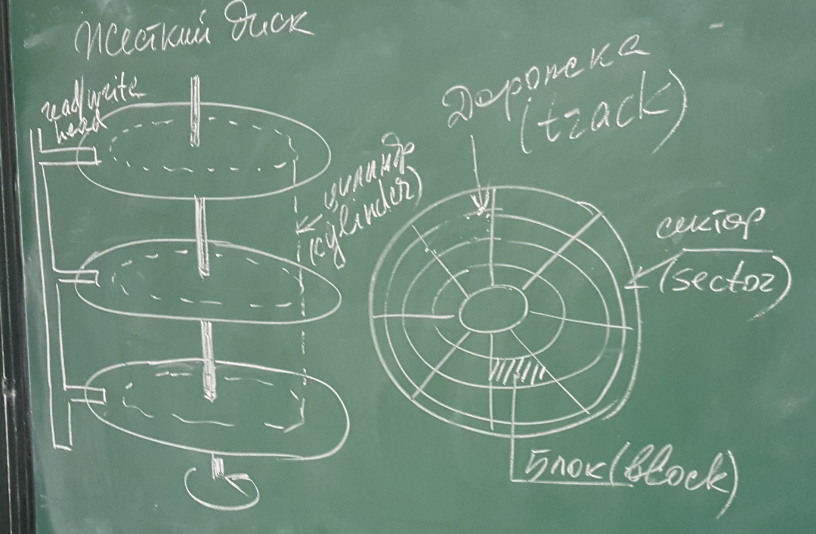 Жесткий диск
read/write
head
цилиндр
(cylinder)
Дорожка
(track)
сектор
(sector)
Блок (block)